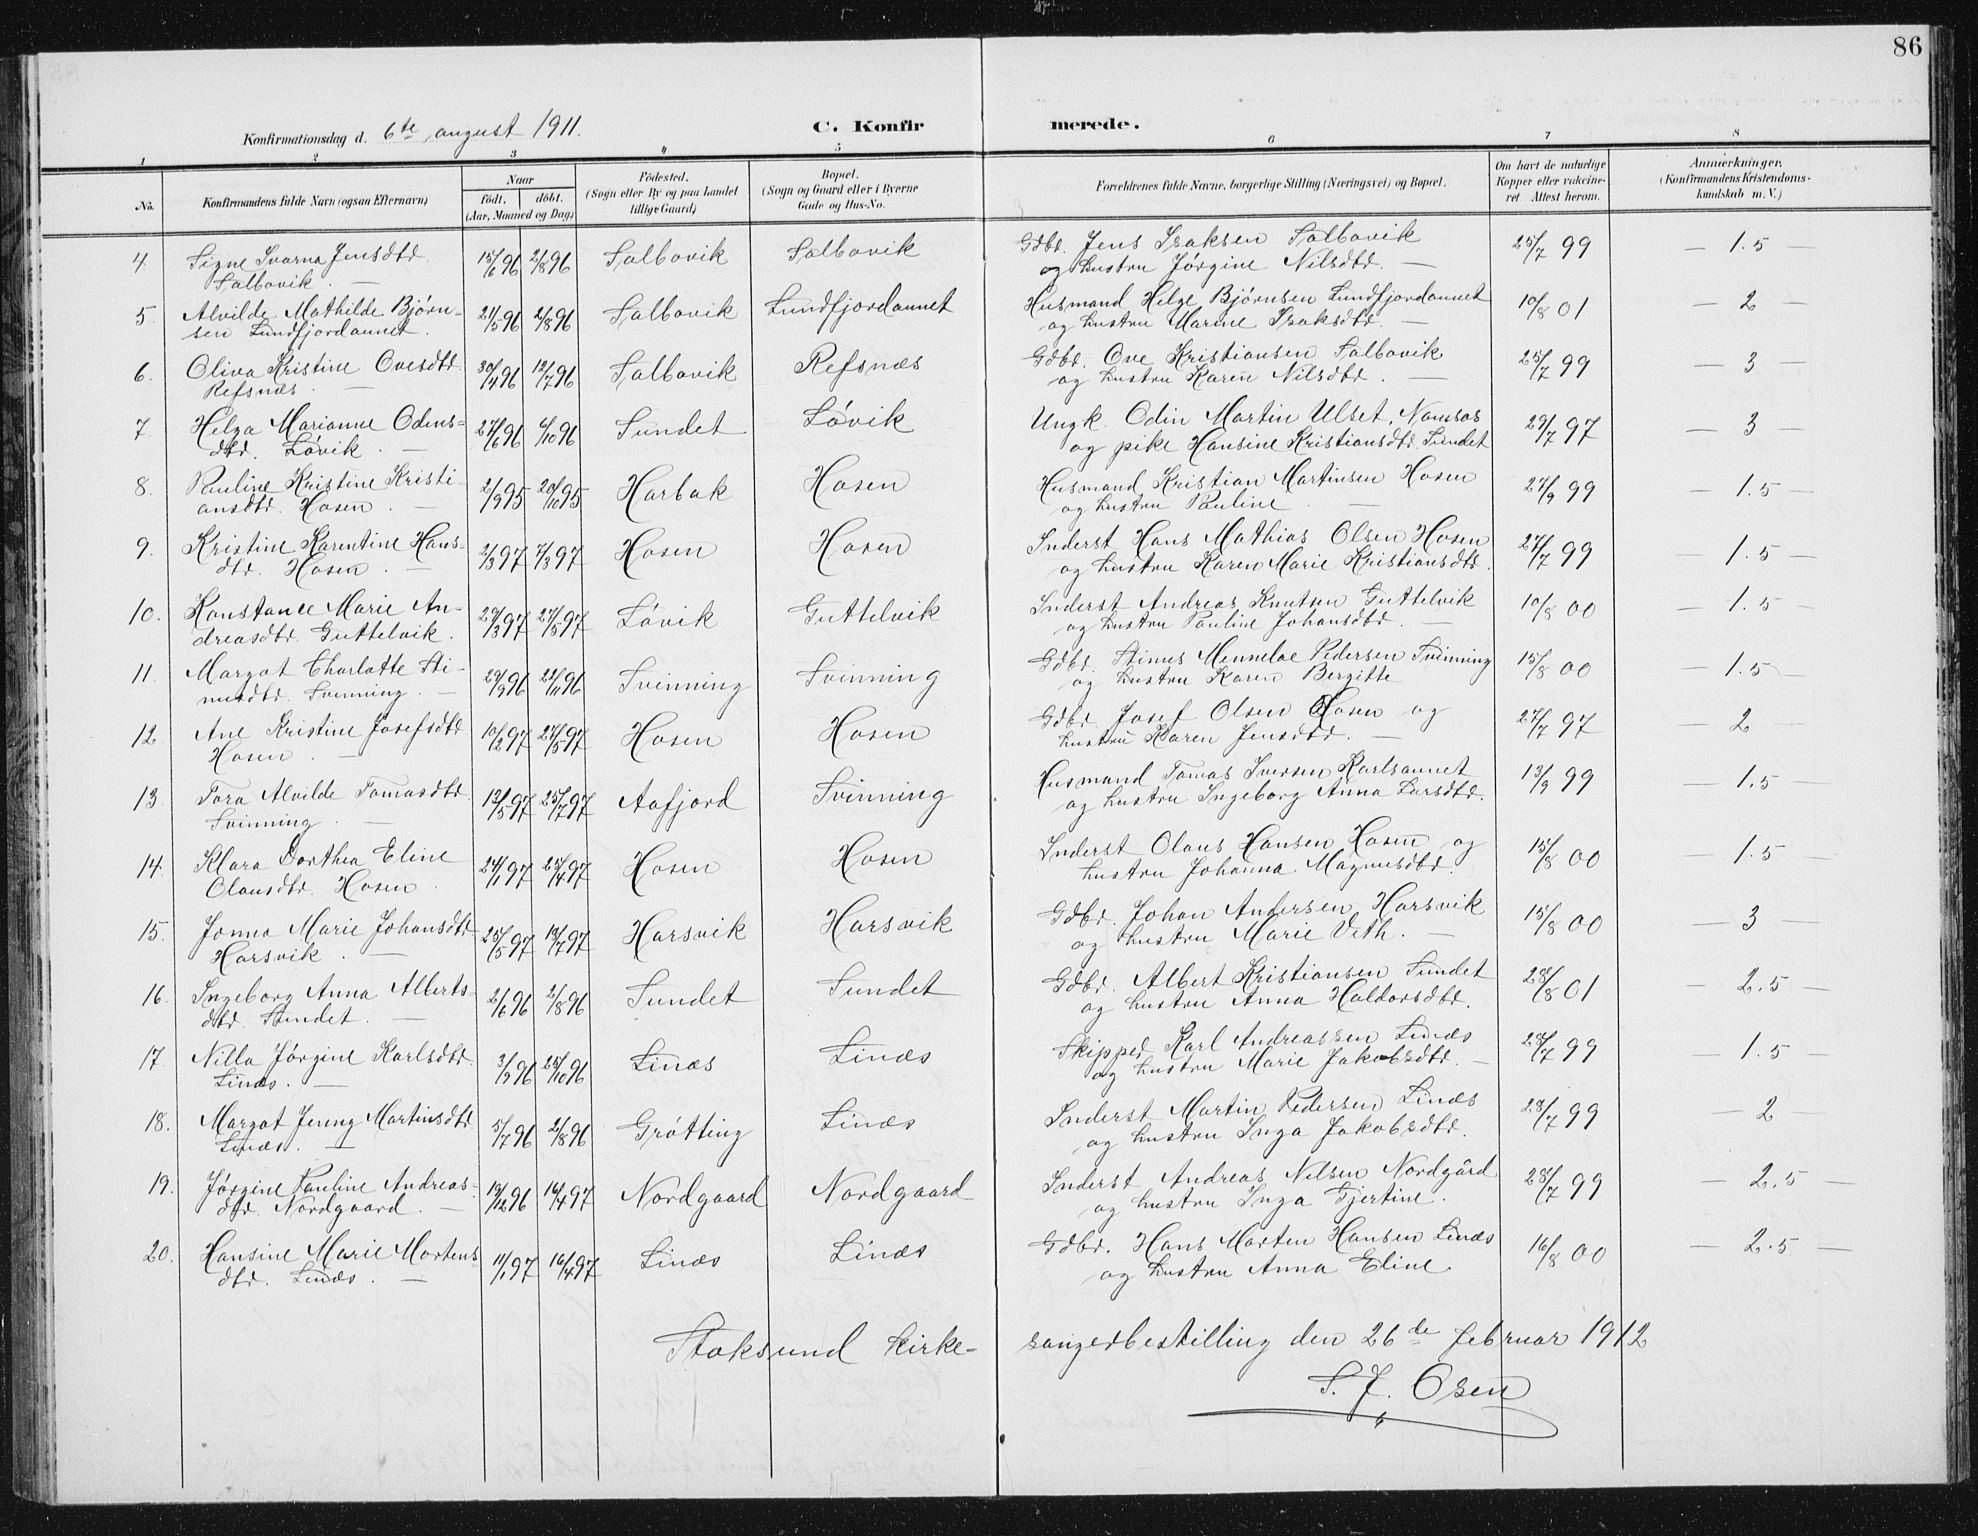 86
Konfirmationsdag d. 6te august 1911.
C. Konfirmerede.
1 2 3 4 5 6 7 8
No.
Konfirmandens fulde Navn (ogsaa Efternavn)
Naar
født. døbt.
(Aar, Maaned og Dag)
Födested.
(Sogn eller By og paa Landet
tillige Gaard)
Bopæl.
(Sogn og Gaard eller i Byerne
Gade og Hus-No.
Forældrenes fulde Navne, borgerlige Stilling (Næringsvei) og Bopæl.
Om havt de naturlige
Kopper eller vakcine-
ret. Attest herom.
Anmærkninger.
(Konfirmandens Kristendoms-
kundskab m. V.)
4. Signe Svarna Jensdtr. 15/6 96 2/8 96 Salbovik Salbovik Gdbr. Jens Isaksen Salbovik 25/7 99 — 1.5 —
Salbovik. — og hustru Jørgine Nilsdtr. —
5. Alvilde Mathilde Bjørn- 21/5 96 2/8 96 Salbovik Sundfjordaunet Husmand Helge Bjørnsen Sundfjordaunet 10/8 01 — 2 —
sen Sundfjordaunet. og hustru Marine Isaksdtr. —
6. Oliva Kristine Ovesdtr. 30/4 96 12/7 96 Salbovik Refsnæs Gdbr. Ove Kristiansen Salbovik 25/7 99 — 3 —
Refsnæs. — og hustru Karen Nilsdtr. —
7. Helga Marianne Odins- 27/6 96 4/10 96 Sundet Løvik Ungk. Odin Martin Ulset, Namsos 29/7 97 — 3 —
dtr. Løvik. — og pike Hansine Kristiansdtr. Sundet
8. Pauline Kristine Kristi- 2/9 95 20/10 95 Harbak Hosen Husmand Kristian Martinsen Hosen 27/9 99 — 1.5 —
ansdtr. Hosen. — og hustru Pauline. —
9. Kristine Karentine Hans- 2/3 97 7/3 97 Hosen Hosen Inderst Hans Mathias Olsen Hosen 27/7 99 — 1.5 —
dtr. Hosen. — og hustru Karen Marie Kristiansdtr.
10. Konstance Marie An- 29/3 97 27/5 97 Løvik Guttelvik Inderst Andreas Knutsen Guttelvik 10/8 00 — 1.5 —
dreasdtr. Guttelvik. og hustru Pauline Johansdtr. —
11. Margot Charlotte Sti- 29/9 96 22/11 96 Svinning Svinning Gdbr. Stinus Mennelae Pedersen Svinning 15/8 00 — 1.5 —
nusdtr. Svinning. — og hustru Karen Bergitte
12. Ane Kristine Josefsdtr. 10/2 97 27/5 97 Hosen Hosen Gdbr. Josef Olsen Hosen og 27/7 97 — 2 —
Hosen. — hustru Karen Jensdtr. —
13. Tora Alvilde Tomasdtr. 12/5 97 25/7 97 Aafjord Svinning Husmand Tomas Iversen Karlsaunet 13/9 99 — 1.5 —
Svinning. — og hustru Ingeborg Anna Larsdtr.
14. Klara Dorthea Eline 24/1 97 25/4 97 Hosen Hosen Inderst Olaus Hansen Hosen og 15/8 00 — 1.5 —
Olausdtr. Hosen. hustru Johanna Magnusdtr.
15. Jonna Marie Johansdtr. 25/5 97 18/7 97 Harsvik Harsvik Gdbr. Johan Andersen Harsvik 15/8 00 — 3 —
Harsvik. — og hustru Marie Veth. —
16. Ingeborg Anna Alberts- 2/6 96 2/8 96 Sundet Sundet Gdbr. Albert Kristiansen Sundet 28/8 01 — 2.5 —
dtr. Sundet. — og hustru Anna Haldorsdtr.
17. Nilla Jørgine Karlsdtr. 3/9 96 25/10 96 Linæs Linæs Skipper Karl Andreassen Linæs 28/7 99 — 1.5 —
Linæs. — og hustru Marie Jakobsdtr. —
18. Margot Jenny Martinsdtr. 5/7 96 2/8 96 Grøtting Linæs Inderst Martin Pedersen Linæs 28/7 99 — 2
Linæs. — og hustru Inga Jakobsdtr.
19. Jørgine Pauline Andreas- 19/12 96 16/4 97 Nordgaard Nordgaard Inderst Andreas Nilsen Nordgård 28/7 99 — 2.5 —
dtr. Nordgaard. — og hustru Inga Fjertine.
20. Hansine Marie Mortens 11/1 97 16/4 97 Linæs Linæs Gdbr. Hans Morten Hansen Linæs 16/8 00 — 2.5 —
dtr. Linæs. — og hustru Anna Eline.
Stoksund kirkesangerbestilling den 26de februar 1912
S. J. Osen